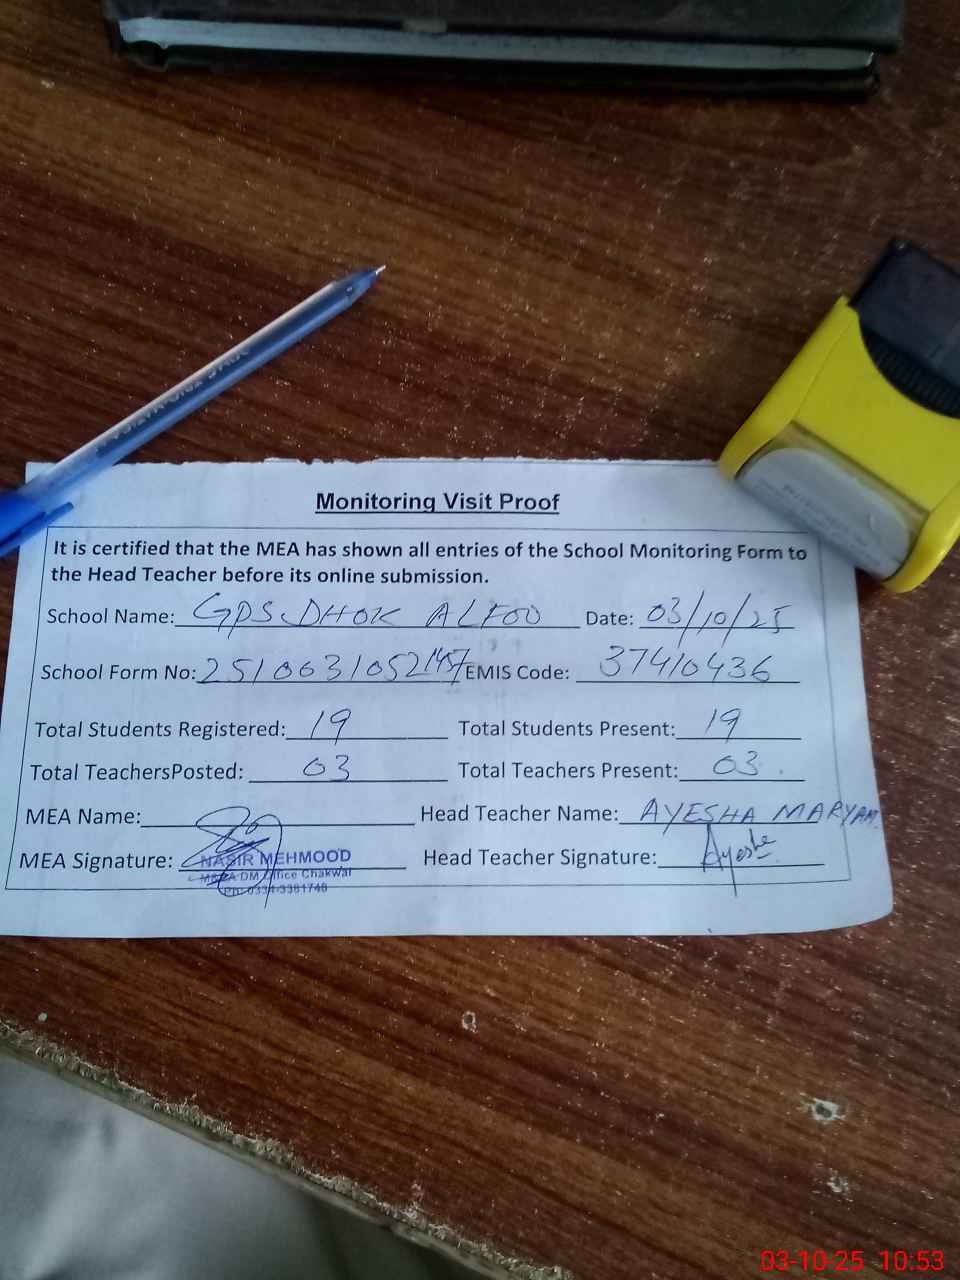 Monitoring Visit Proof
It is certified that the MEA has shown all entries of the School Monitoring Form to
the Head Teacher before its online submission.
School Name: GPS DHOK ALFOO Date: 03/10/25
School Form No: 2510031052145 EMIS Code: 37410436
Total Students Registered: 19 Total Students Present: 19
Total TeachersPosted: 03 Total Teachers Present: 03
MEA Name: Head Teacher Name: AYESHA MARYAM
MEA Signature: NASIR MEHMOOD Head Teacher Signature: Ayesha
DM Office Chakwal
Ph: 0334-3381748
03-10-25 10:53